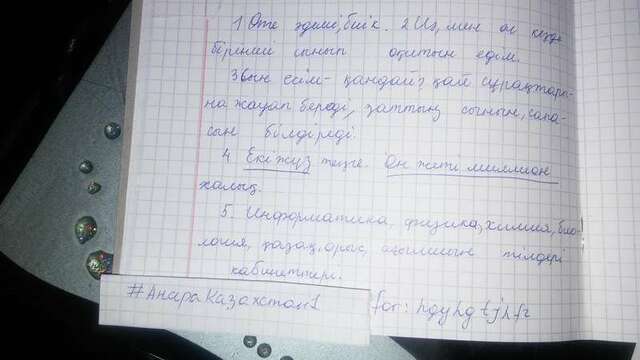 1 Өте әдемі, биік. 2 Иә, мен ол кезде
бірінші сынып оқитын едім.
3 Сын есім - қандай? қай сұрақтары-
на жауап береді, заттың сынын, сапа-
сын білдіреді.
4. Екі жүз теңге. Он жеті миллион
халық.
5. Информатика, физика, химия, био-
логия, қазақ, орыс, ағылшын тілдері
кабинеттері.
#АнараКазахстан1
for: hgyhg tjhfr